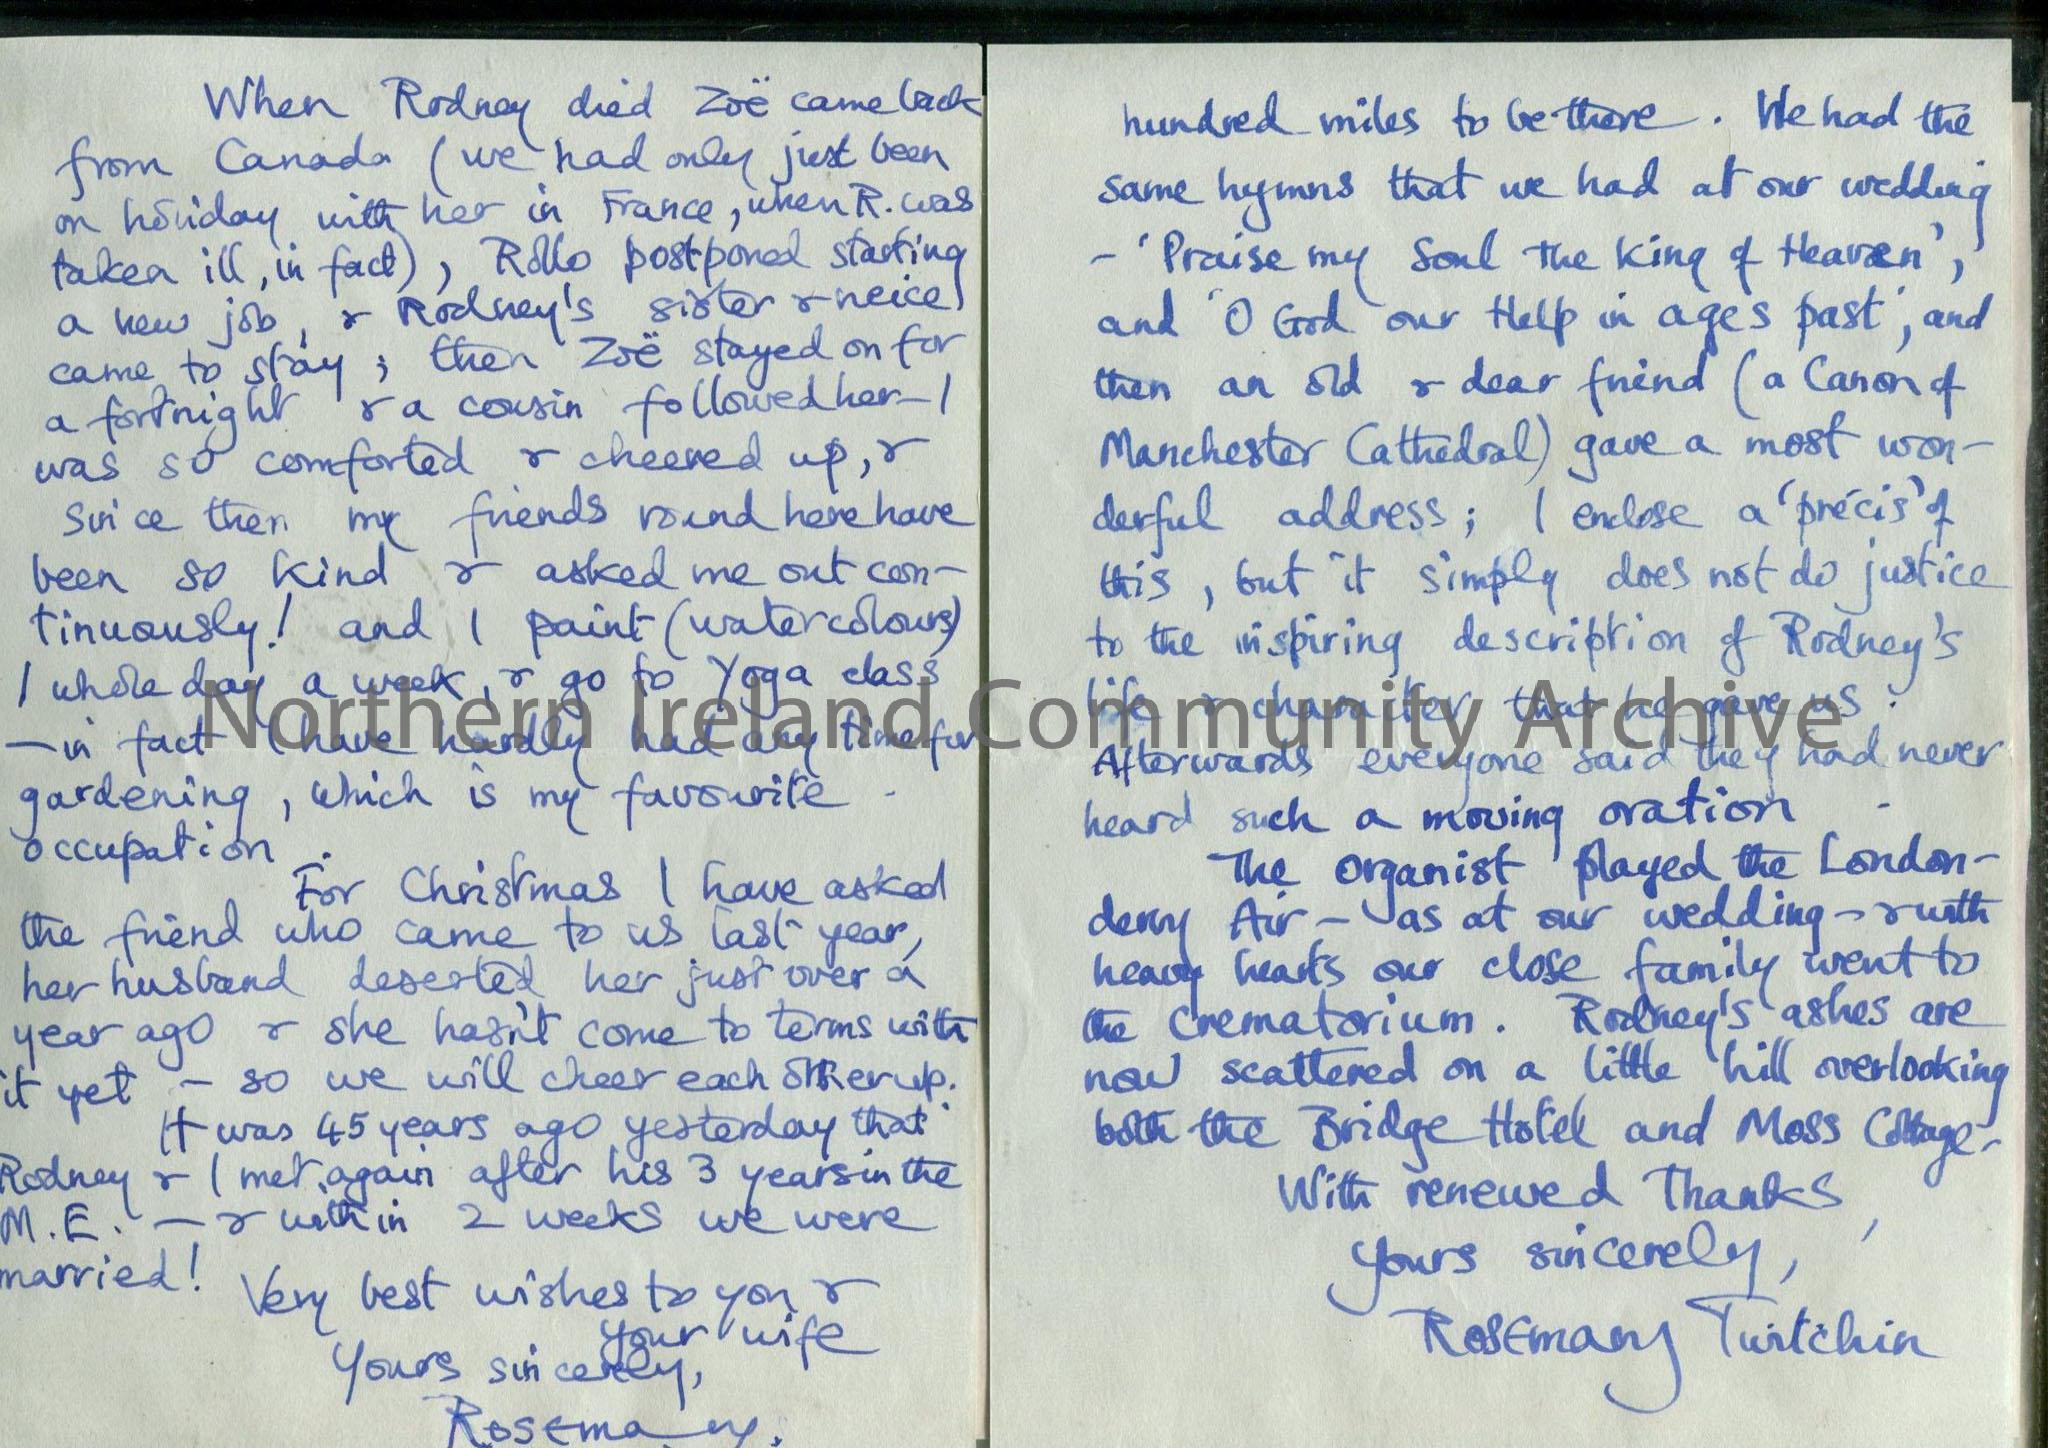 When Rodney died Zoë came back
from Canada (we had only just been
on holiday with her in France, when R. was
taken ill, in fact), Rollo postponed starting
a new job, & Rodney's sister & neice
came to stay; then Zoë stayed on for
a fortnight & a cousin followed her - I
was so comforted & cheered up, &
since then my friends round here have
been so kind & asked me out con-
tinuously! and I paint (watercolours)
1 whole day a week, & go to Yoga class
- in fact I have hardly had any time for
gardening, which is my favourite
occupation.
For Christmas I have asked
the friend who came to us last year,
her husband deserted her just over a
year ago & she hasn't come to terms with
it yet - so we will cheer each other up.
It was 45 years ago yesterday that
Rodney & I met again after his 3 years in the
M.E. - & within 2 weeks we were
married!
Very best wishes to you &
your wife
Yours sincerely,
Rosemary.
hundred miles to be there. We had the
same hymns that we had at our wedding
- 'Praise my Soul the King of Heaven',
and 'O God our Help in ages past', and
then an old & dear friend (a Canon of
Manchester Cathedral) gave a most won-
derful address; I enclose a 'précis' of
this, but it simply does not do justice
to the inspiring description of Rodney's
life & character that he gave us.
Afterwards everyone said they had never
heard such a moving oration.
The organist played the London-
derry Air - as at our wedding - & with
heavy hearts our close family went to
the Crematorium. Rodney's ashes are
now scattered on a little hill overlooking
both the Bridge Hotel and Moss Cottage.
With renewed Thanks,
Yours sincerely,
Rosemary Twitchin
Northern Ireland Community Archive